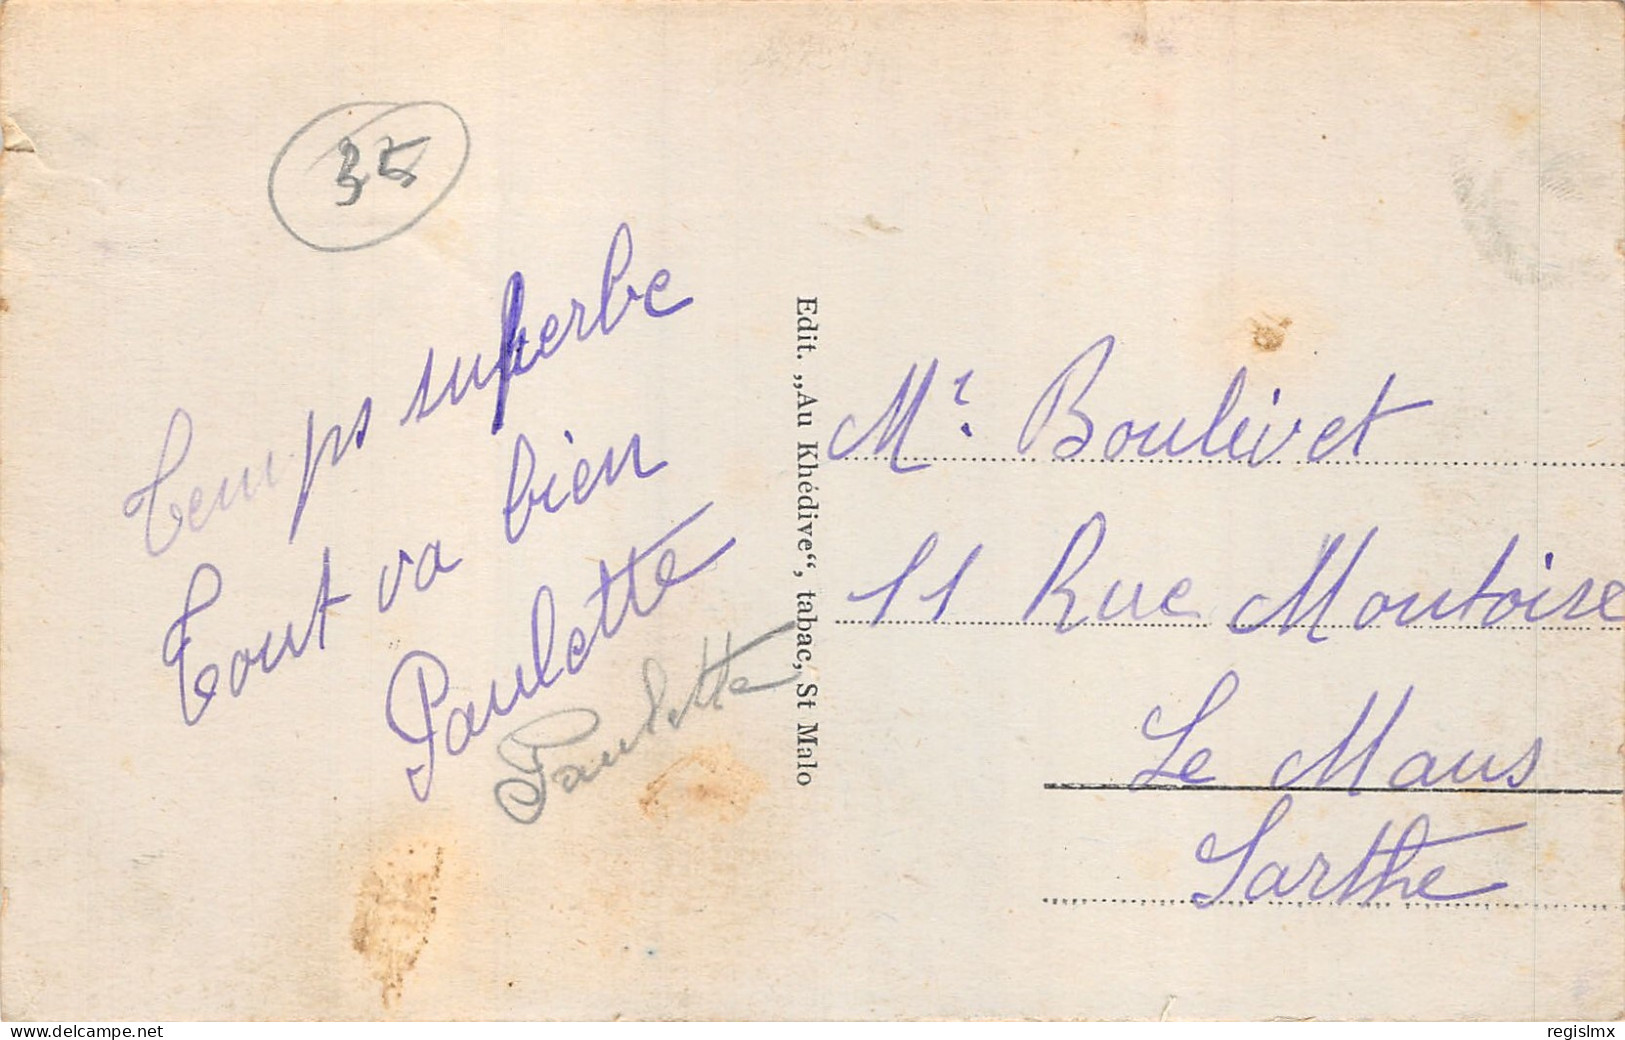 35
Temps superbe
Tout va bien
Paulette
Paulette
Edit. „Au Khédive“, tabac, St Malo
Mr. Boulivet
11 Rue Montoise
Le Mans
Sarthe
www.delcampe.net
regislmx